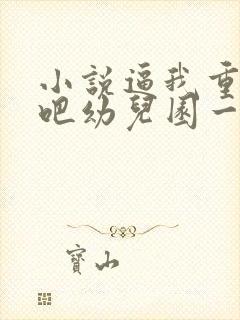 小說逼我重
吧幼兒園一
寶山